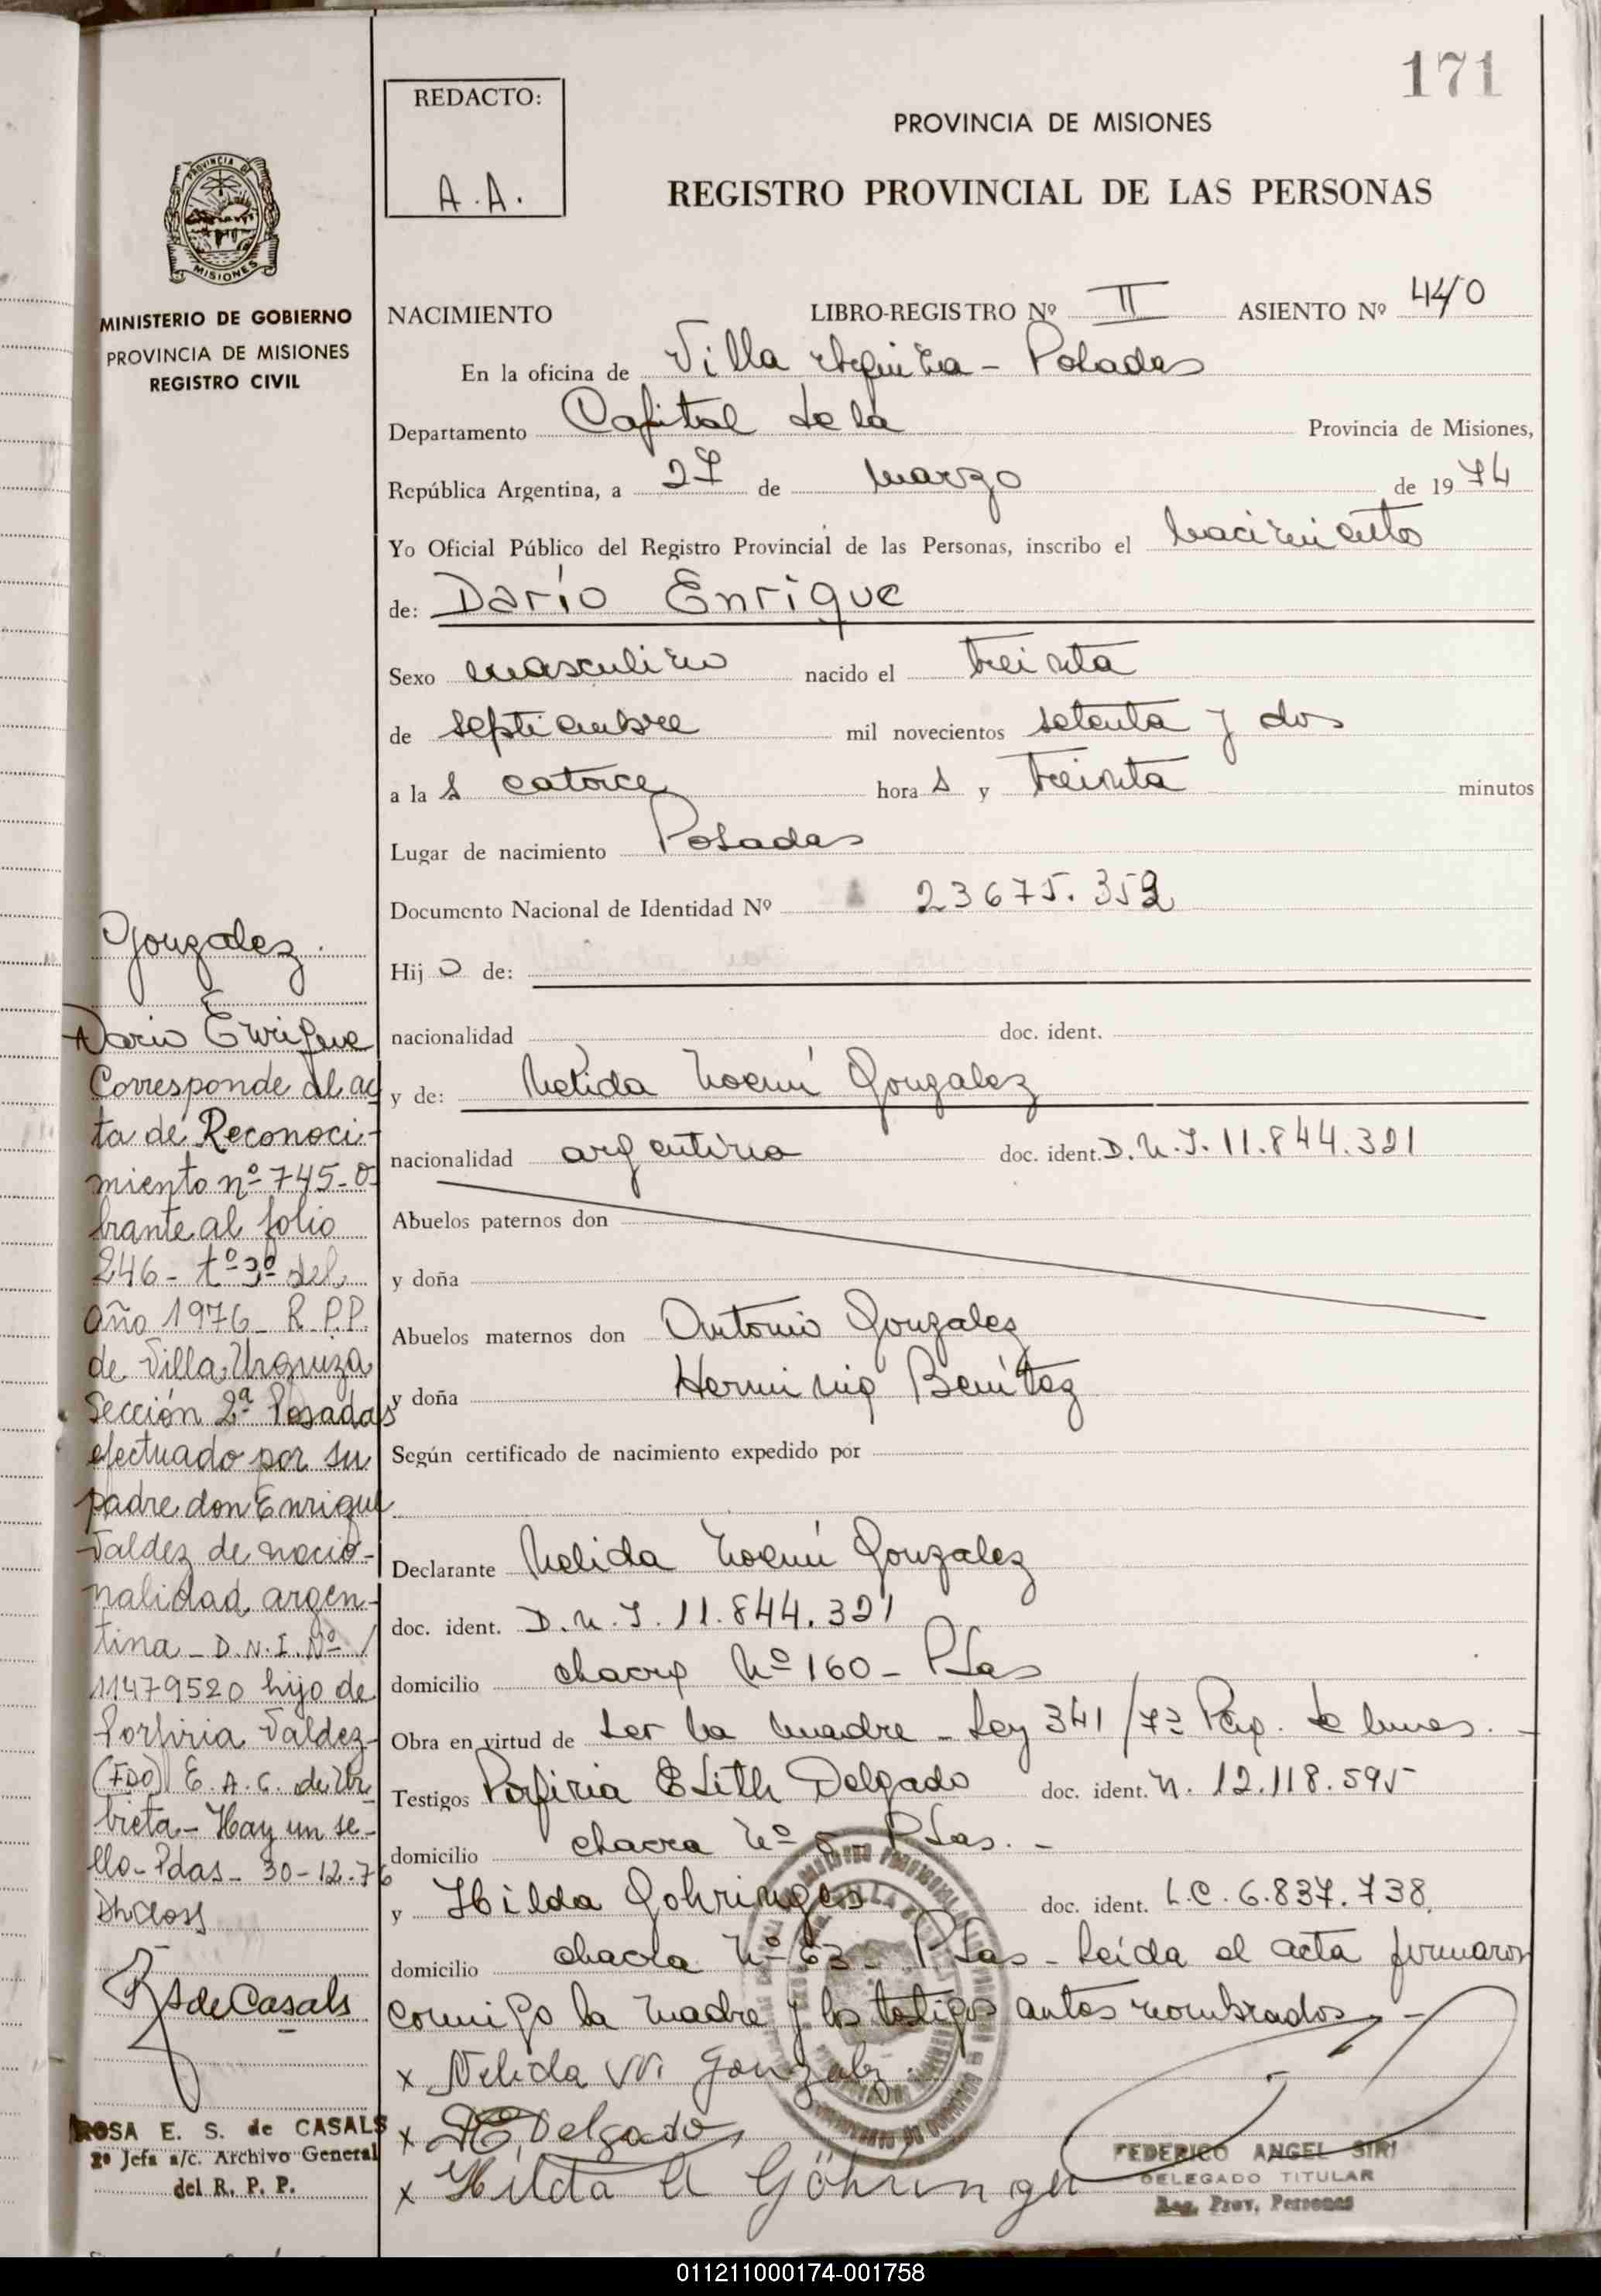 171
REDACTO:
A.A.
PROVINCIA DE MISIONES
REGISTRO PROVINCIAL DE LAS PERSONAS
PROVINCIA DE
MISIONES
MINISTERIO DE GOBIERNO
PROVINCIA DE MISIONES
REGISTRO CIVIL
NACIMIENTO LIBRO-REGISTRO Nº II ASIENTO Nº 440
En la oficina de Villa Urquiza - Posadas
Departamento Capital de la Provincia de Misiones,
República Argentina, a 27 de marzo de 1974
Yo Oficial Público del Registro Provincial de las Personas, inscribo el nacimiento
de: Darío Enrique
Sexo masculino nacido el treinta
de septiembre mil novecientos setenta y dos
a la s catorce hora s y treinta minutos
Lugar de nacimiento Posadas
Documento Nacional de Identidad Nº 23675.352
Hij o de:
nacionalidad doc. ident.
y de: Nelida Noemí Gonzalez
nacionalidad argentina doc. ident. D.N.I. 11.844.321
Abuelos paternos don
y doña
Abuelos maternos don Antonio Gonzalez
y doña Herminia Benítez
Según certificado de nacimiento expedido por
Declarante Nelida Noemí Gonzalez
doc. ident. D.N.I. 11.844.321
domicilio chacra Nº 160 - Pdas
Obra en virtud de ser la madre - Ley 341/73
Testigos Porfiria Edith Delgado doc. ident. N. 12.118.595
domicilio chacra Nº Pdas. -
y Hilda Gohringer doc. ident. L.C. 6.837.738.
domicilio chacra Nº 63 - Pdas - Leída el acta firmaron
conmigo la madre y los testigos antes nombrados -
x Nelida N. Gonzalez.
x Delgado
x Hilda Göhringer
FEDERICO ANGEL SIRI
DELEGADO TITULAR
Reg. Prov. Personas
Gonzalez.
Dario Enrique
Corresponde al ac
ta de Reconoci-
miento nº 745-o
brante al folio
246 - tº 3º del
año 1976 - R.P.P.
de Villa Urquiza
Sección 2ª Posadas
efectuado por su
padre don Enrique
Valdez de nacio-
nalidad argen-
tina - D.N.I. Nº
11479520 hijo de
Porfiria Valdez-
(FDO) E. A. C. de Ur
bieta - Hay un se-
llo - Pdas - 30-12-76
RS de Casals
ROSA E. S. de CASALS
2º Jefa a/c. Archivo General
del R. P. P.
011211000174-001758